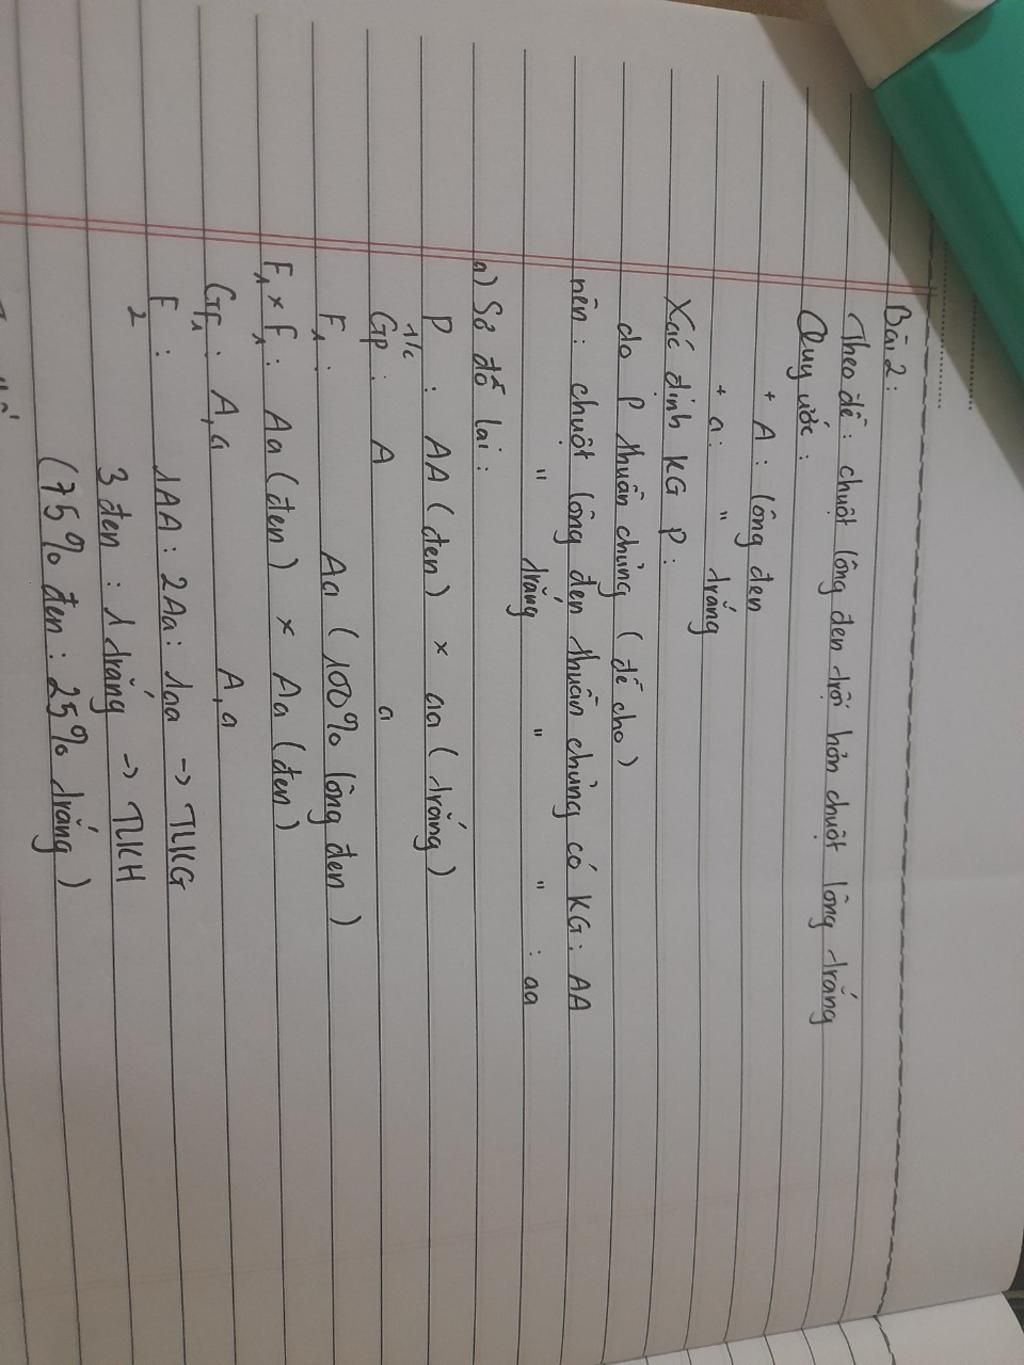 Bài 2:
Theo đề: chuột lông đen trội hơn chuột lông trắng
Quy ước:
+ A: lông đen
+ a: " trắng
Xác định KG P:
do P thuần chủng (đề cho)
nên: chuột lông đen thuần chủng có KG: AA
" trắng " " : aa
a) Sơ đồ lai:
P t/c : AA (đen) × aa (trắng)
Gp: A a
F1: Aa (100% lông đen)
F1 × F1: Aa (đen) × Aa (đen)
GF1: A,a A,a
F2: 1AA: 2Aa: 1aa -> TLKG
3 đen : 1 trắng -> TLKH
(75% đen : 25% trắng)